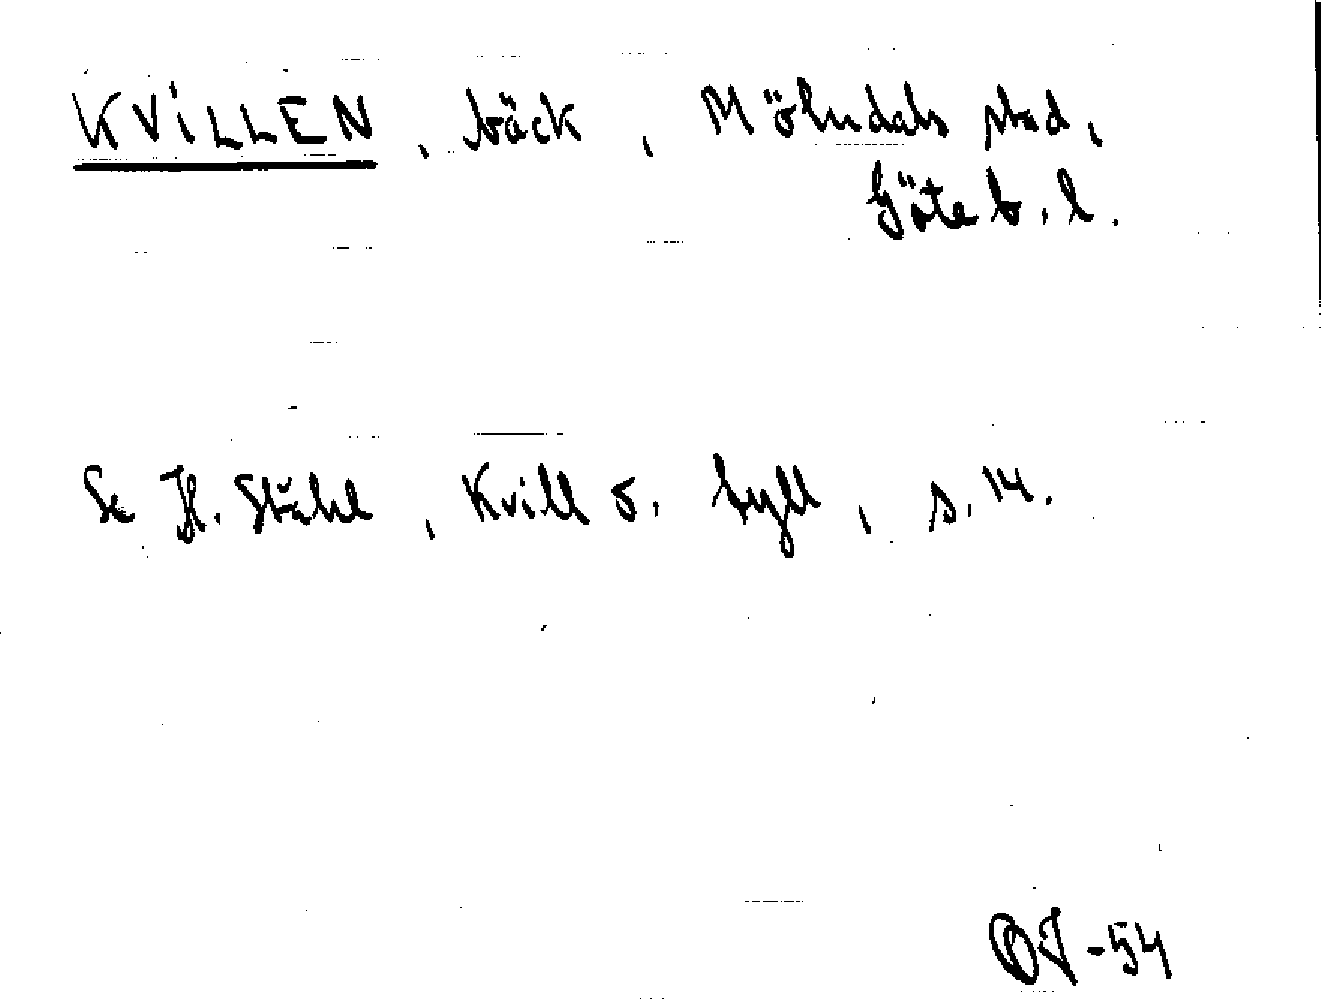 KVILLEN, bäck, Mölndals stad,
Göteb. l.
Se H. Ståhl, Kvill o. tyll, s. 14.
OJ-54